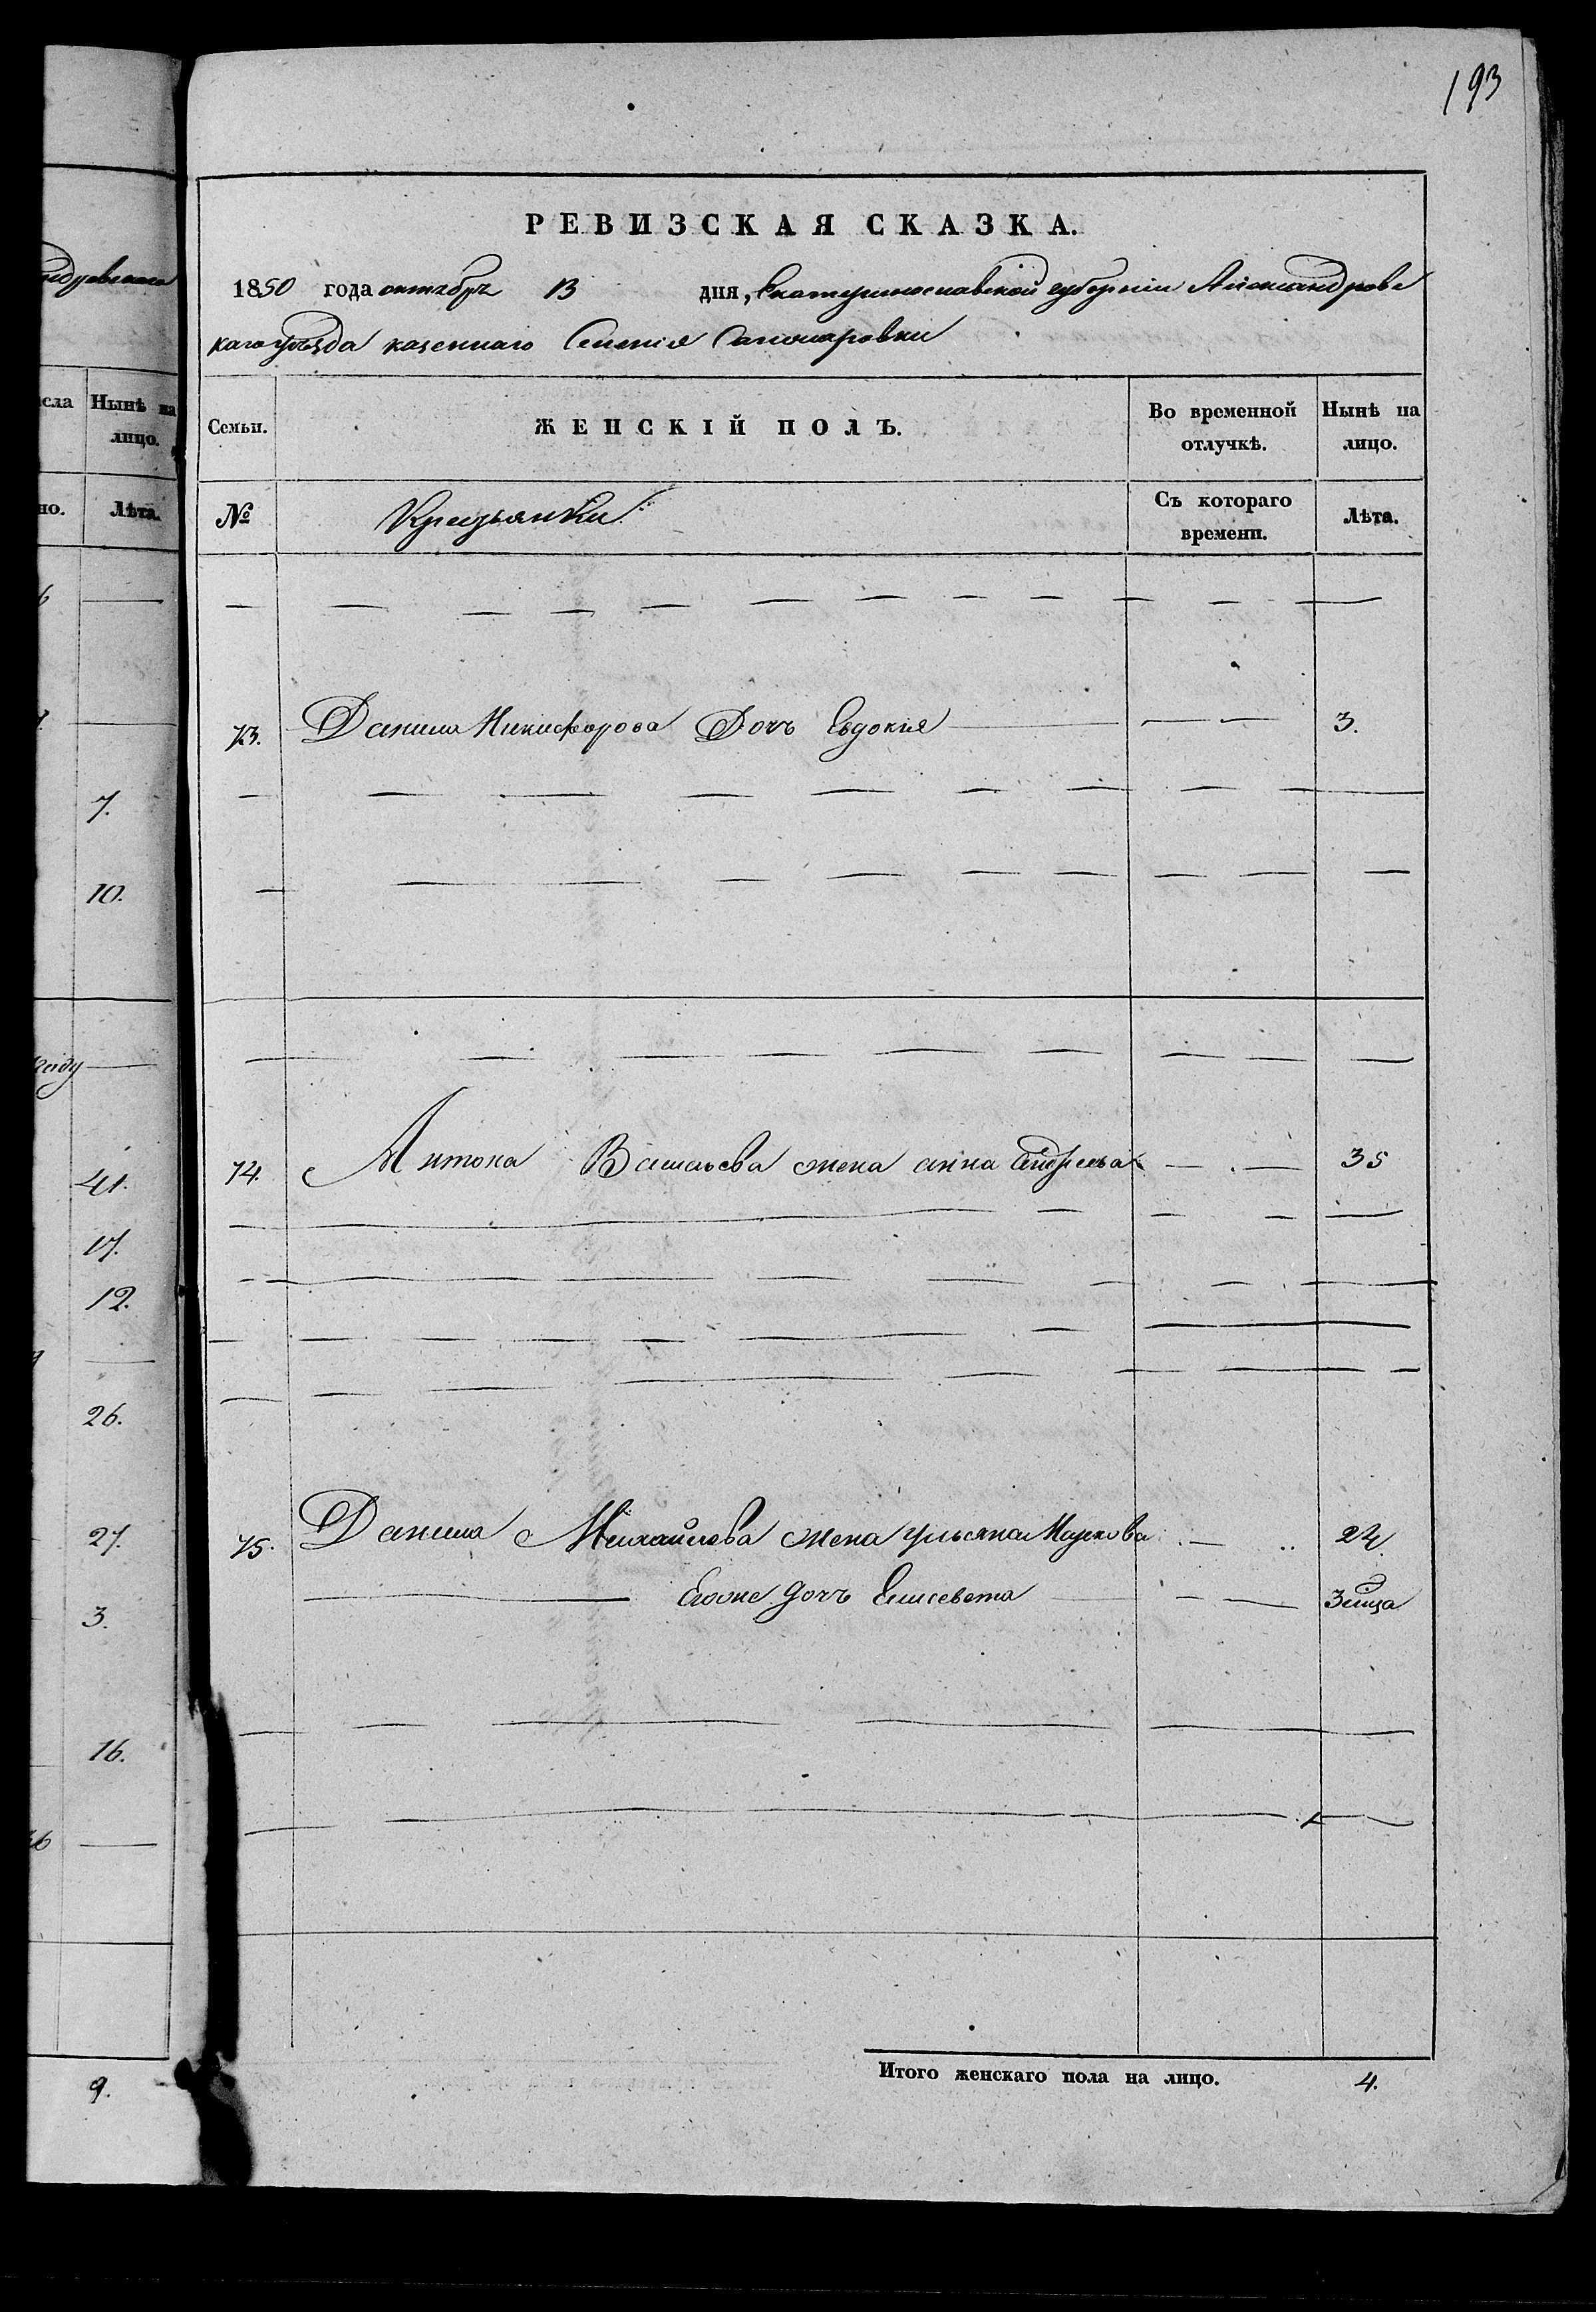 193
РЕВИЗСКАЯ СКАЗКА.
1850 года октября 13 дня, Екатеринославской губернии Александровс
каго уѣзда казеннаго Селенія
Семьи.
ЖЕНСКІЙ ПОЛЪ.
Во временной отлучкѣ.
Нынѣ на лицо.
№
Крестьянки
Съ котораго времени.
Лѣта.
73. Данила Никифорова Дочь Евдокія 3.
74. Антона Васильева жена анна андреева 35
75. Данила Михайлова жена ульяна Маркова 24.
Егоже дочь Елисевета 3 мца
Итого женскаго пола на лицо. 4.
Нынѣ на
лицо.
но. Лѣта.
7.
10.
41.
17.
12.
26.
27.
3.
16.
9.